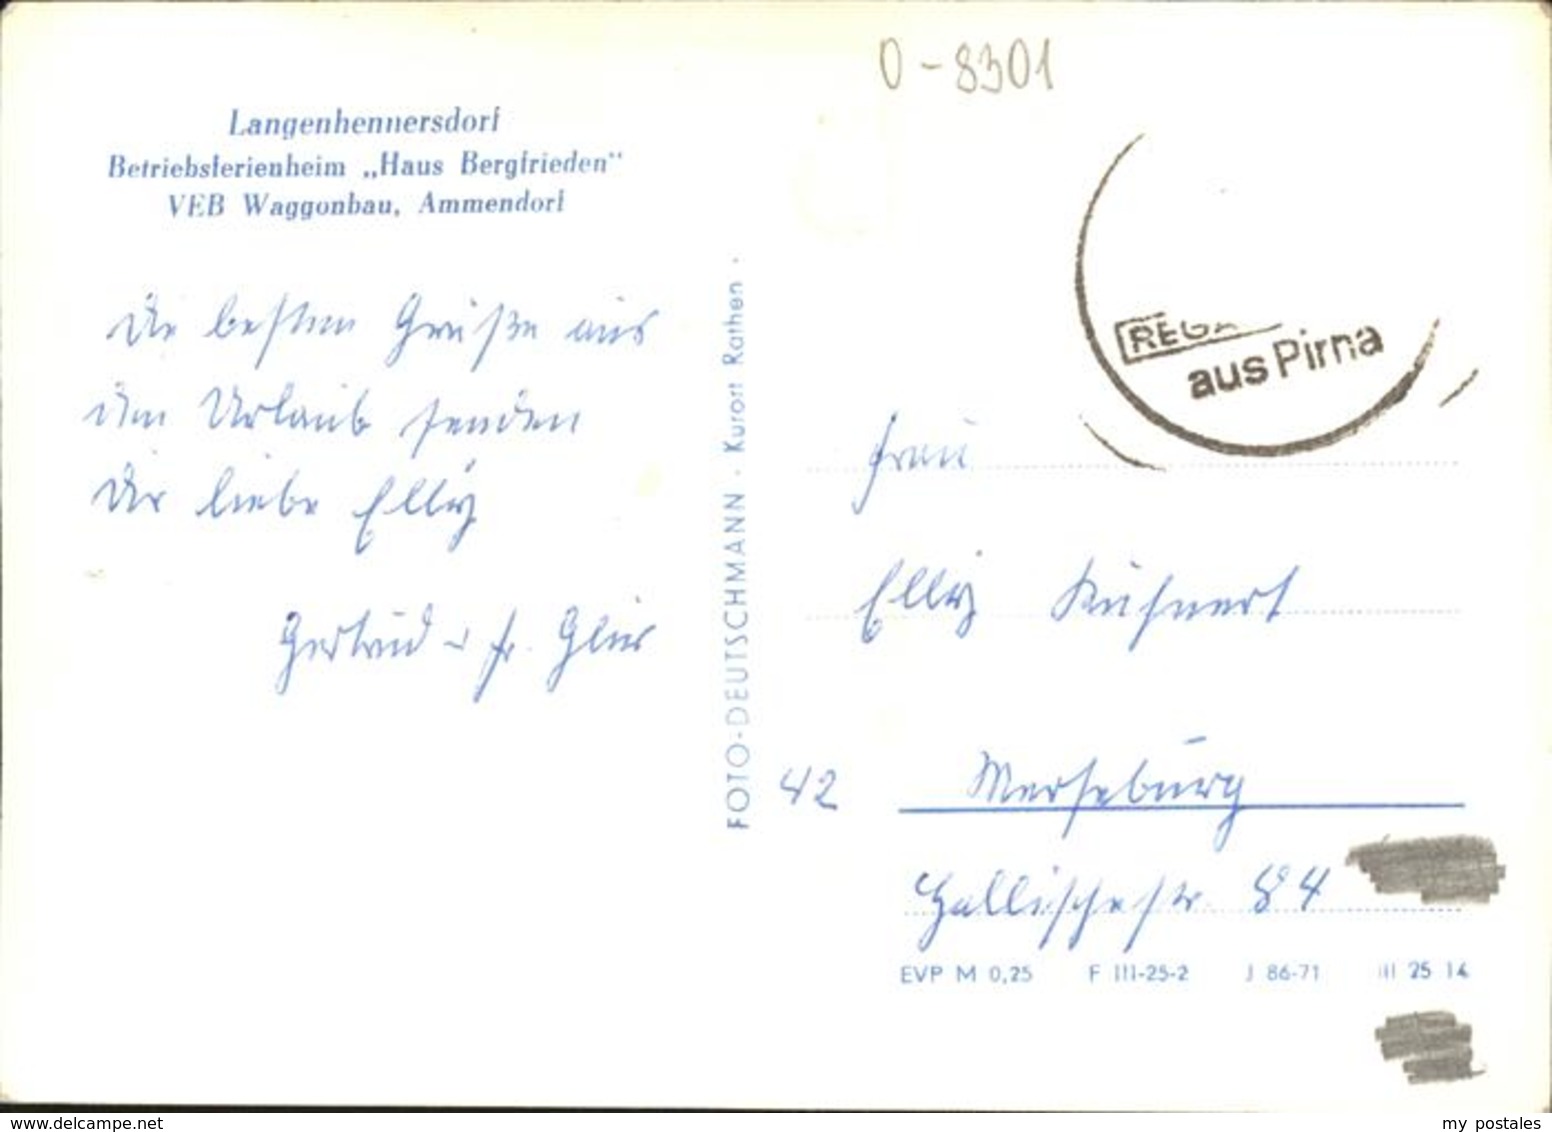 0-8301
Langenhennersdorf
Betriebsferienheim „Haus Bergfrieden“
VEB Waggonbau, Ammendorf
Die besten Grüße aus
dem Urlaub senden
Dir liebe Elly
Gertrud u. Fr.
FOTO-DEUTSCHMANN · Kurort Rathen ·
aus Pirna
Frau
Elly Kühnert
42 Merseburg
Hallischestr. 84
EVP M 0,25 F III-25-2 J 86-71 III 25 14
www.delcampe.net
my postales